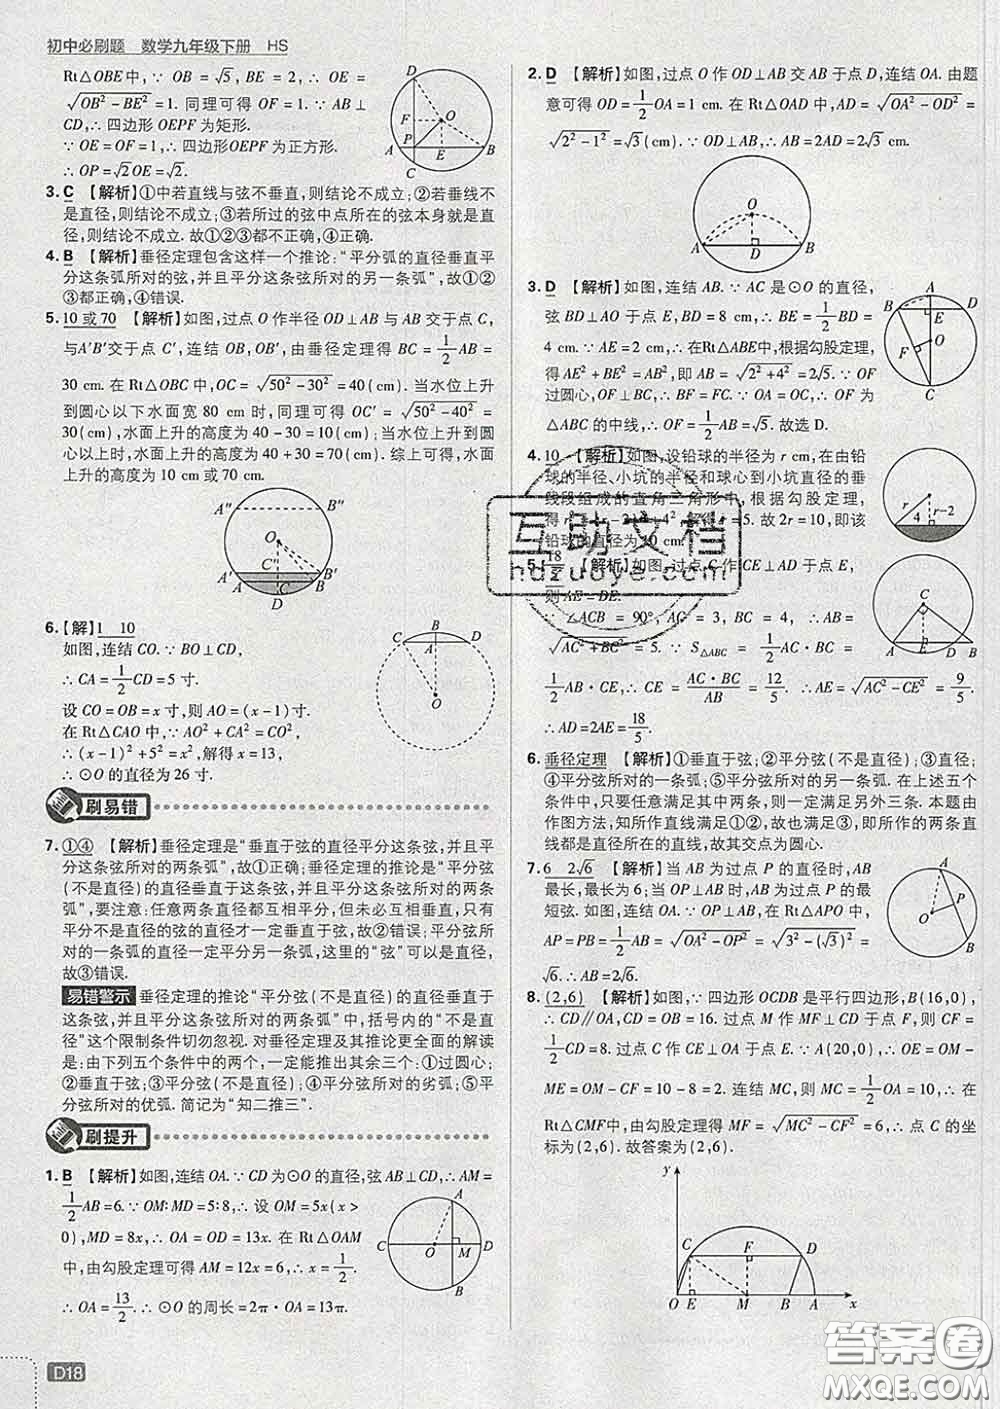 初中必刷题 数学九年级下册 HS
Rt△OBE中, ∵ OB = √5, BE = 2, ∴ OE =
√(OB²-BE²) = 1. 同理可得 OF = 1. ∵ AB⊥
CD, ∴ 四边形 OEPF 为矩形.
∵ OE = OF = 1, ∴ 四边形OEPF 为正方形.
∴ OP = √2 OE = √2.
3. C 【解析】①中若直线与弦不垂直,则结论不成立;②若垂线不
是直径,则结论不成立;③若所过的弦中点所在的弦本身就是直
径,则结论不成立. 故①②③不正确,④正确.
4. B 【解析】垂径定理包含这样一个推论:“平分弧的直径垂直平
分这条弧所对的弦,并且平分这条弦所对的另一条弧”,故①②
③都正确,④错误.
5. 10 或 70 【解析】如图,过点 O 作半径 OD⊥AB 与 AB 交于点 C,
与A′B′交于点 C′, 连结 OB, OB′, 由垂径定理得 BC = 1/2 AB =
30 cm. 在 Rt△OBC 中, OC = √(50²-30²) = 40(cm). 当水位上升
到圆心以下水面宽 80 cm 时,同理可得 OC′ = √(50²-40²) =
30(cm),水面上升的高度为 40-30 = 10(cm);当水位上升到圆
心以上时,水面上升的高度为 40+30 = 70(cm). 综上可得,水面
上升的高度为 10 cm 或 70 cm.
6.【解】1 10
如图,连结 CO. ∵ BO⊥CD,
∴ CA = 1/2 CD = 5 寸.
设 CO = OB = x 寸,则 AO = (x-1)寸.
在 Rt△CAO 中, ∵ AO² + CA² = CO²,
∴ (x-1)² + 5² = x²,解得 x = 13,
∴ ⊙O 的直径为 26 寸.
刷易错
7. ①④ 【解析】垂径定理是“垂直于弦的直径平分这条弦,并且平
分这条弦所对的两条弧”,故①正确;垂径定理的推论是“平分弦
(不是直径)的直径垂直于这条弦,并且平分这条弦所对的两条
弧”,要注意:任意两条直径都互相平分,但未必互相垂直,只有
平分不是直径的弦的直径才一定垂直于弦,故②错误;平分弦所
对的一条弧的直径一定平分另一条弧,这里的“弦”可以是直径,
故③错误.
易错警示 垂径定理的推论“平分弦(不是直径)的直径垂直于
这条弦,并且平分这条弦所对的两条弧”中,括号内的“不是直
径”这个限制条件切勿忽视. 对垂径定理及其推论更全面的解读
是:由下列五个条件中的两个,一定能推出其余三个:①过圆心;
②垂直于弦;③平分弦(不是直径);④平分弦所对的劣弧;⑤平
分弦所对的优弧. 简记为“知二推三”.
刷提升
1. B 【解析】如图,连结 OA. ∵ CD 为⊙O 的直径,弦 AB⊥CD, ∴ AM =
1/2 AB = 6. ∵ OM∶MD = 5∶8, ∴ 设 OM = 5x(x>
0), MD = 8x, ∴ OA = OD = 13x. 在 Rt△OAM
中,由勾股定理可得 AM = 12x = 6, ∴ x = 1/2.
∴ OA = 13/2. ∴ ⊙O 的周长 = 2π·OA = 13π.
D18
2. D 【解析】如图,过点 O 作 OD⊥AB 交 AB 于点 D,连结 OA. 由题
意可得 OD = 1/2 OA = 1 cm. 在 Rt△OAD 中, AD = √(OA²-OD²) =
√(2²-1²) = √3(cm). ∵ OD⊥AB, ∴ AB = 2AD = 2√3 cm.
3. D 【解析】如图,连结 AB. ∵ AC 是⊙O 的直径,
弦 BD⊥AO 于点 E, BD = 8 cm, ∴ BE = 1/2 BD =
4 cm. ∵ AE = 2 cm, ∴ 在Rt△ABE中,根据勾股定理,
得 AE² + BE² = AB², 即 AB = √(2²+4²) = 2√5. ∵ OF
过圆心, OF⊥BC, ∴ BF = FC. ∵ OA = OC, ∴ OF 为
△ABC 的中线, ∴ OF = 1/2 AB = √5. 故选 D.
4. 10 【解析】如图,设铅球的半径为 r cm,在由铅
球的半径、小坑的半径和球心到小坑直径的垂
线段组成的直角三角形中,根据勾股定理,
得 解得 r = 5. 故 2r = 10, 即该
铅球的直径为 10 cm.
5. 18/5 【解析】如图,过点 C 作 CE⊥AD 于点 E,
则 AE = DE.
∵ ∠ACB = 90°, AC = 3, BC = 4, ∴ AB =
√(AC²+BC²) = 5. ∵ S△ABC = 1/2 AC·BC =
1/2 AB·CE, ∴ CE = AC·BC/AB = 12/5. ∴ AE = √(AC²-CE²) = 9/5.
∴ AD = 2AE = 18/5.
6. 垂径定理 【解析】①垂直于弦;②平分弦(不是直径);③直径;
④平分弦所对的一条弧;⑤平分弦所对的另一条弧. 在上述五个
条件中,只要任意满足其中两条,则一定满足另外三条. 本题由
作图方法,知所作直线满足①②,故也满足③,即所作的两条直
线都是直径所在的直线,故其交点为圆心.
7. 6 2√6 【解析】当 AB 为过点 P 的直径时, AB
最长,最长为 6;当 OP⊥AB 时, AB 为过点 P 的最
短弦. ∵ OP⊥AB, ∴ AP = PB. 在 Rt△APO 中,
AP = PB = 1/2 AB = √(OA²-OP²) = √(3²-(√3)²) =
√6. ∴ AB = 2√6.
8. (2,6) 【解析】如图, ∵ 四边形 OCDB 是平行四边形, B(16,0),
∴ CD∥OA, CD = OB = 16. 过点 M 作 MF⊥CD 于点 F,则 CF =
1/2 CD = 8. 过点 C 作 CE⊥OA 于点 E. ∵ A(20,0), ∴ OE = OM-
ME = OM-CF = 10-8 = 2. 连结 MC,则 MC = 1/2 OA = 10, ∴ 在
Rt△CMF中,由勾股定理得 MF = √(MC²-CF²) = 6, ∴ 点 C 的坐
标为(2,6). 故答案为(2,6).
互助文档
hdzuoye.com
答案圈
MXQE.COM